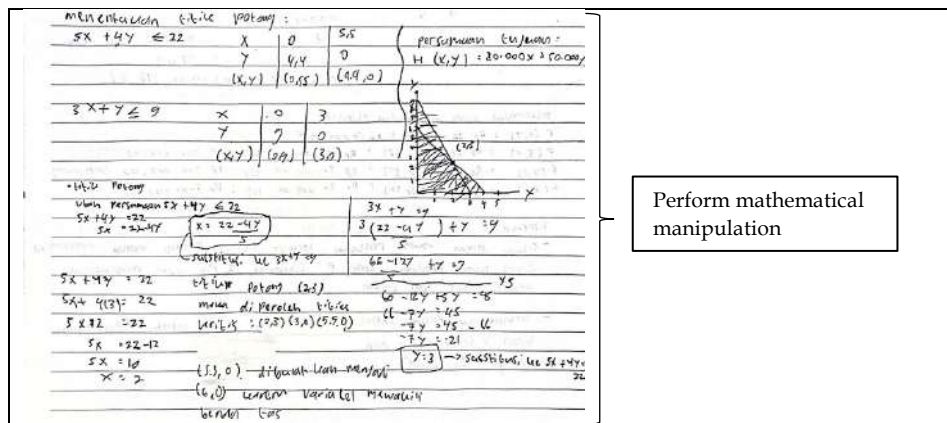 menentukan titik potong :
5x + 4y ≤ 22
x | 0 | 5,5
y | 4,4 | 0
(x,y) | (0,55) | (4.4,0)
persamaan tujuan :
H (x,y) = 80.000x + 50.000y
3x + y ≤ 9
x | 0 | 3
y | 9 | 0
(x,y) | (0,9) | (3,0)
(2,3)
y
x
• titik potong
ubah persamaan 5x + 4y ≤ 22
5x + 4y = 22
5x = 22 - 4y
x = 22 - 4y
5
substitusi ke 3x+y = 9
3x + y = 9
3 (22 - 4y) + y = 9
5
66 - 12y + y = 9
5
x5
66 - 12y + 5y = 45
66 - 7y = 45
-7y = 45 - 66
-7y = -21
y = 3 → substitusi ke 5x + 4y =
22
5x + 4y = 22
5x + 4(3) = 22
5x 12 = 22
5x = 22 - 12
5x = 10
x = 2
titik potong (2,3)
maka diperoleh titik
kritis : (2,3) (3,0) (5.5,0)
(5.5, 0) dibulatkan menjadi
(6,0) karena variabel mewakili
benda
Perform mathematical
manipulation